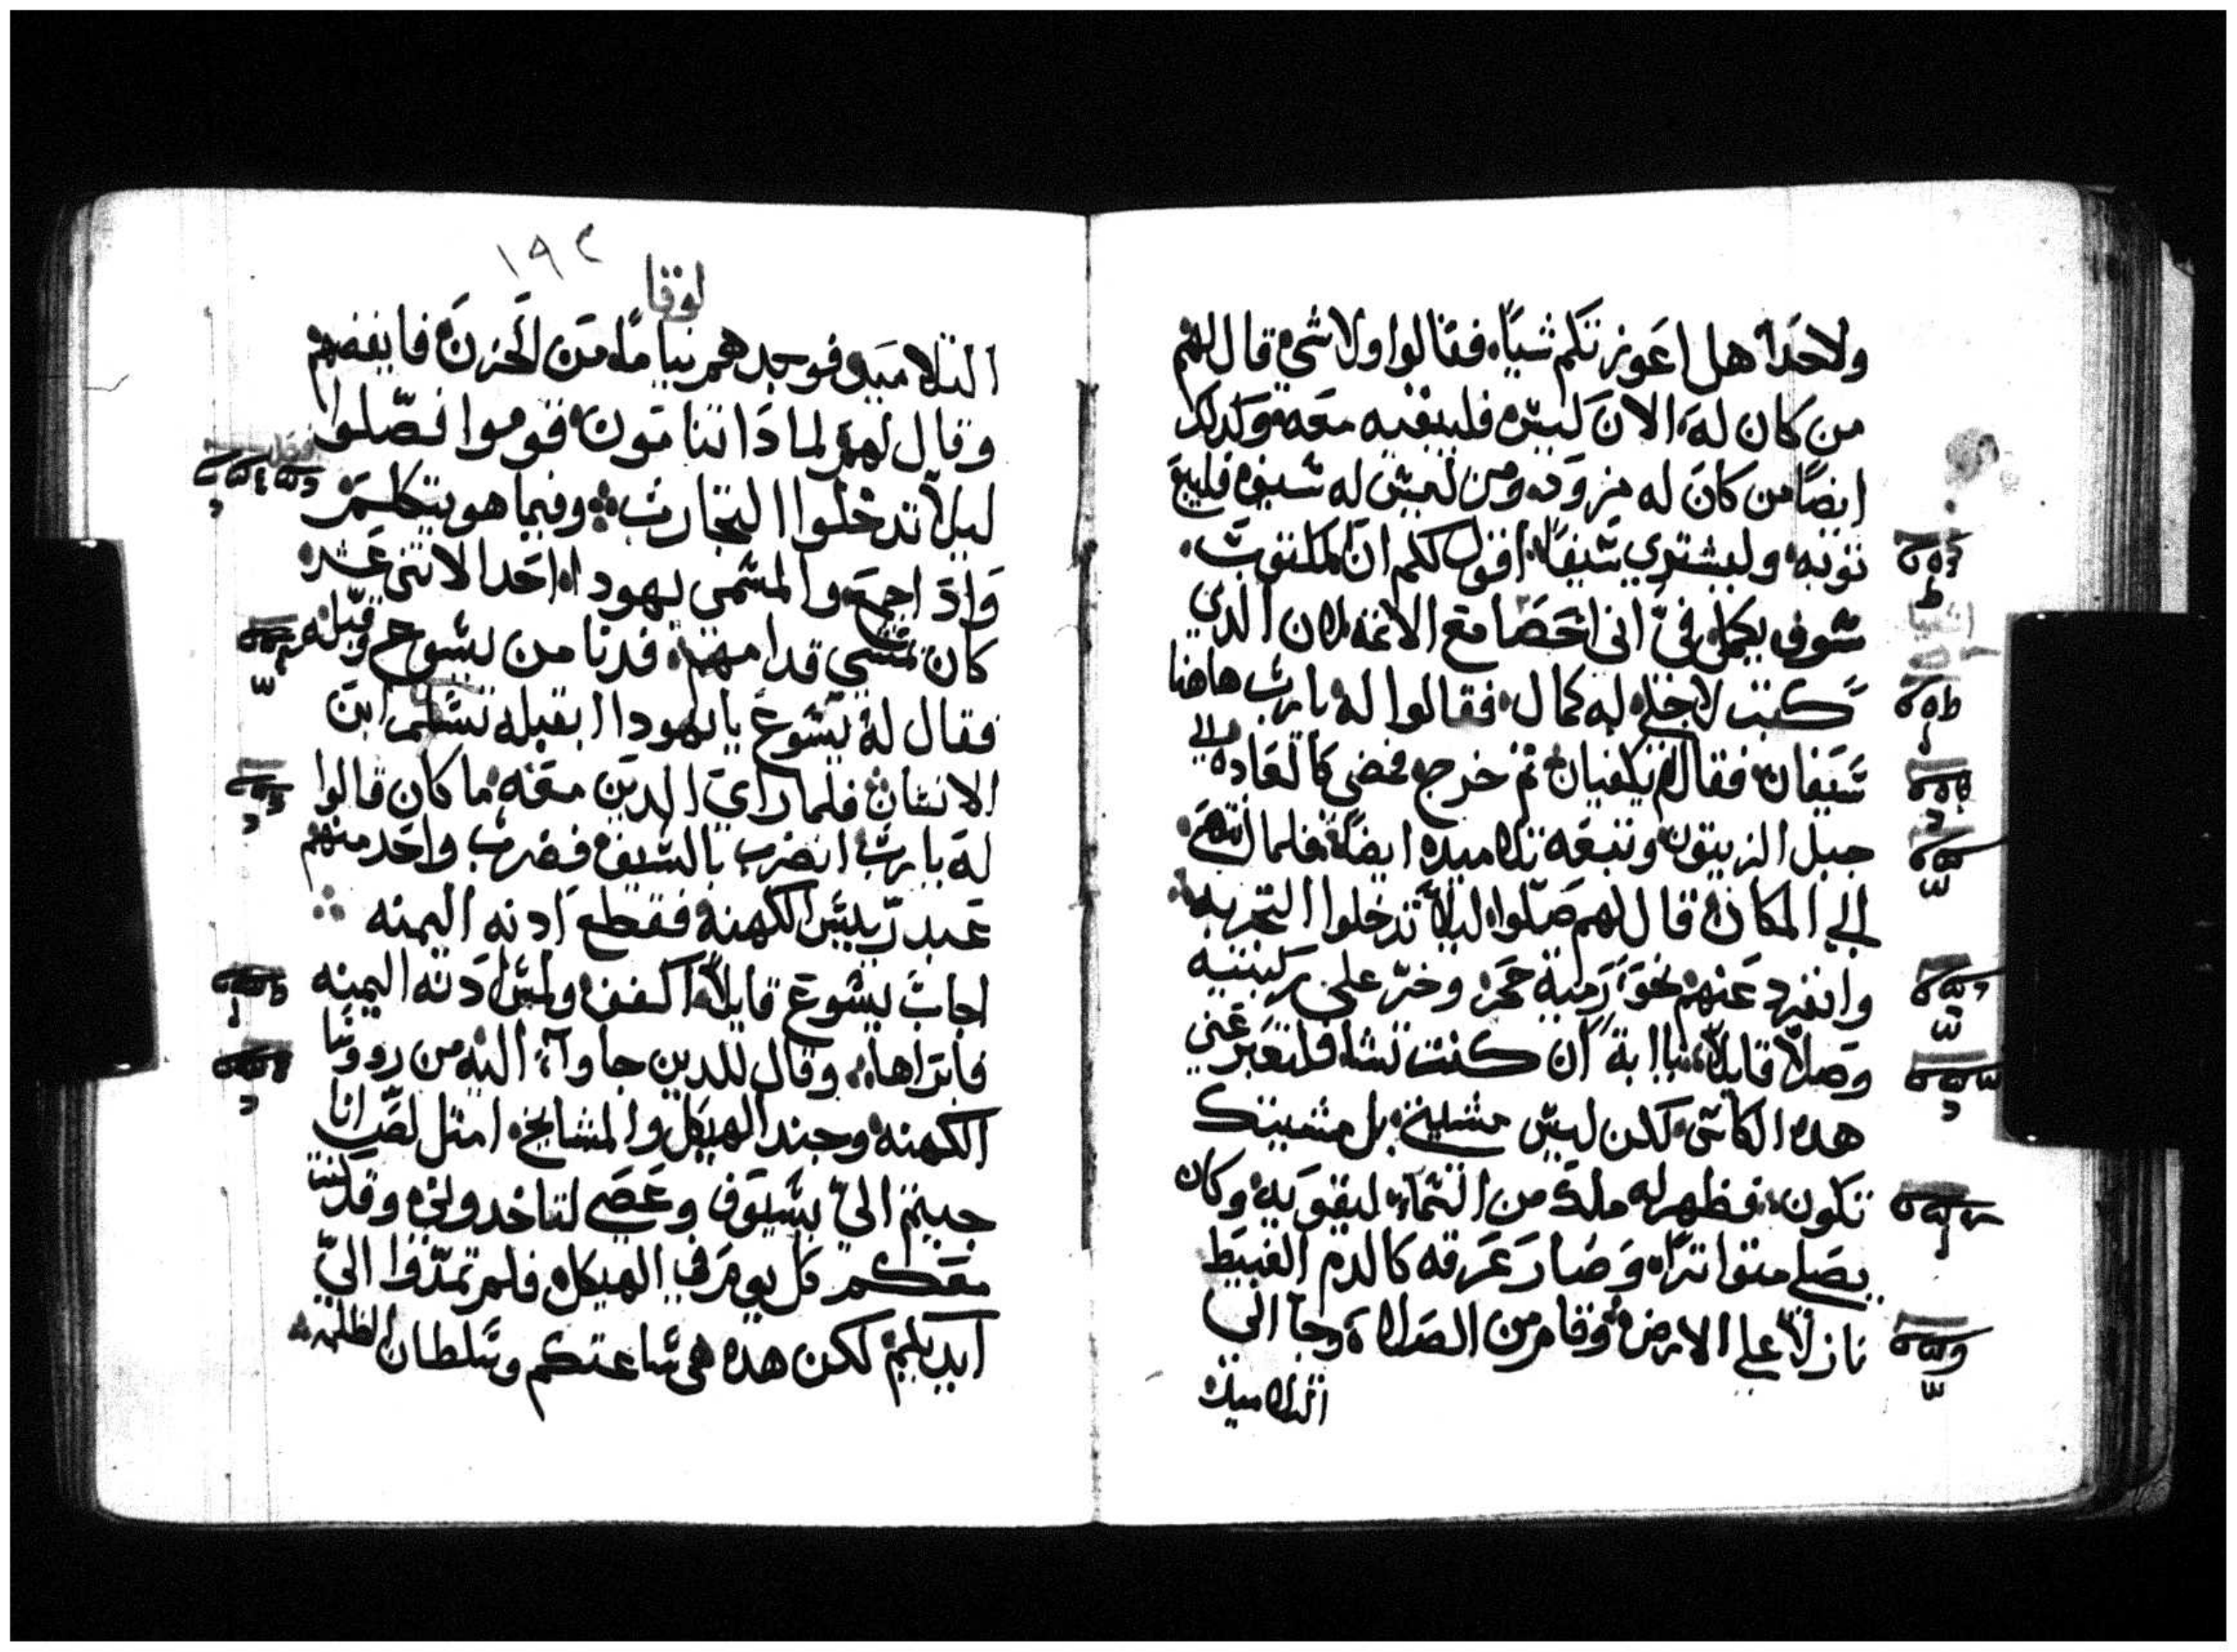 ولاحدًا هل اعوزتكم شيًا فقالوا ولا شي قال لهم
من كان له الان كيس فليبقيه معه وكدلك
ايضًا من كان له مزوده ومن ليس له سيف فليبع
توبه وليشتري سيفًا اقول لكم ان المكتوب
سوف يكمل فيّ اني احصا مع الاتمه لان الدي
كتب لاجلي له كمال فقالوا له يارب هاهنا
سيفان فقال لهم يكفيان تم خرج فمضي كالعاده الي
جبل الزيتون وتبعه تلاميده ايضًا فلما انتهي
الي المكان قال لهم صلّوا ليلاّ تدخلوا التجربه
وانفرد عنهم نحو رمية حجر وخرّ علي ركبتيه
وصلاّ قايلاً يا ابة ان كنت تشا فلتعبر عني
هده الكاس لكن ليس مشيتي بل مشيتك
تكون فظهر له ملاك من السماء ليقويه وكان
يصلي متواترًا وصار عرقه كالدم الغبيط
نازلاً علي الارض وقام من الصلاة وجا الي
التلاميد
١٩٢
لوقا
التلاميد فوجدهم نيامًا من الحزن فايقضهم
وقال لهم لمادا تنامون قوموا فصّلوا
ليلاّ تدخلوا التجارب وفيما هو يتكلم
وادا جمع والمسمي يهودا احد الاتني عشر
كان يمشي قدامهم فدنا من يسوع وقبّله
فقال له يسوع يا يهودا ابقبله تسلم ابن
الانسان فلما راي الدين معه ما كان قالوا
له يارب انضرب بالسيف فضرب واحد منهم
عبد رييس الكهنه فقطع ادنه اليمنه
اجاب يسوع قايلاً اكفف ولمس ادنه اليمنه
فابراها وقال للدين جاوآ اليه من رووسا
الكهنه وجند الهيكل والمشايخ امتل لصّ انا
جيتم اليّ بسيوف وعصي لتاخدوني وقد كنت
معكم كل يوم في الهيكل فلم تمدّوا اليّ
ايديكم لكن هده هي ساعتكم وسلطان الظلمه